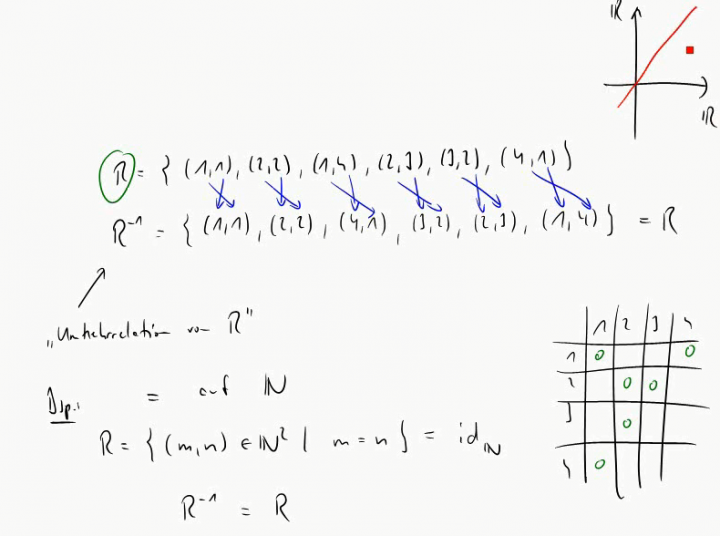 ℝ
ℝ
R = { (1,1), (2,2), (1,4), (2,3), (3,2), (4,1) }
R⁻¹ = { (1,1), (2,2), (4,1), (3,2), (2,3), (1,4) } = R
„Umkehrrelation von R"
Bsp.: = auf ℕ
R = { (m,n) ∈ ℕ² | m = n } = id_ℕ
R⁻¹ = R
1 2 3 4
1 0 0
2 0 0
3 0
4 0